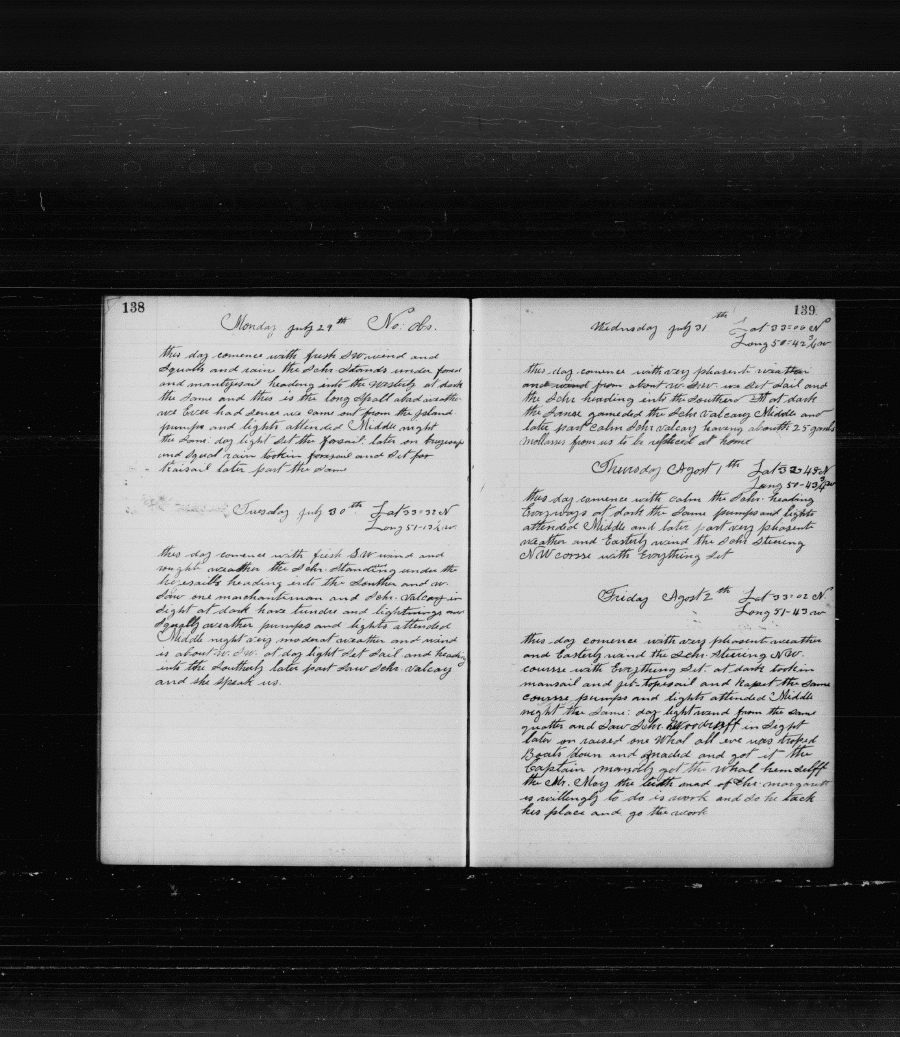 138
Monday july 29th No. obs.
this day comence with fresh S.W. wind and
Squalls and rain the Schr. Stands under foresl
and mantopsail heading into the Westerly at dark
the Same and this is the long Spall abad weather
we Ever had Sence we came out from the island
pumps and lights attended Middle night
the Same: day light Set the forsail. later on
and Squal rain tookin foresail and Set for
traisail later part the Same
Tuesday july 30th Lat 33=32 N
Long 51-13 w
this day comence with fresh S.W. wind and
rought weather the Schr. Standing under the
heading into the Souther and w.
Saw one marchantman and Schr. Valcary in
Sight at dark have tundre and lightnings and
Squally weather pumps and lights attended
Middle night very moderat weather and wind
is about W.S.W. at day light Set Sail and heading
into the Southerly later part Saw Schr. Valcary
and she Speak us.
139
Wednsday july 31th Lat 33=00 N
Long 50-42 3/4 w
this day comence with very pleasent weather
and wind from about W.S.W. we Set Sail and
the Schr heading into the Southern at dark
the Same gameded the Schr Valcary Middle and
later part calm Schr Valcary having abouth 25 gauls
mollases from us to be replaced at home
Thursday Agost 1th Lat 32=48 N
Long 50-43 3/4 w
this day comence with calm the Schr. heading
Everyways at dark the Same pumps and lights
attended Middle and later part very pleasent
weather and Easterly wind the Schr Steering
N W corrse with Everything Set
Friday Agost 2th Lat 33=02 N
Long 51-43 w
this day comence with very pleasent weather
and Easterly wind the Schr. Steering N W.
course with Everything Set. at dark tookin
mansail and jib-topesail and kapet the Same
courrse pumps and lights attended Middle
night the Same: day light wind from the Same
quatter and Saw Schr. Woodruff in Sight
later on raised one Whal all eve was troped
Boats down and got it the
Captain the Whal himselff
the Mr. Mory the mad of Schr. margarett
is willingly to do is work and So he tack
his place and go the work